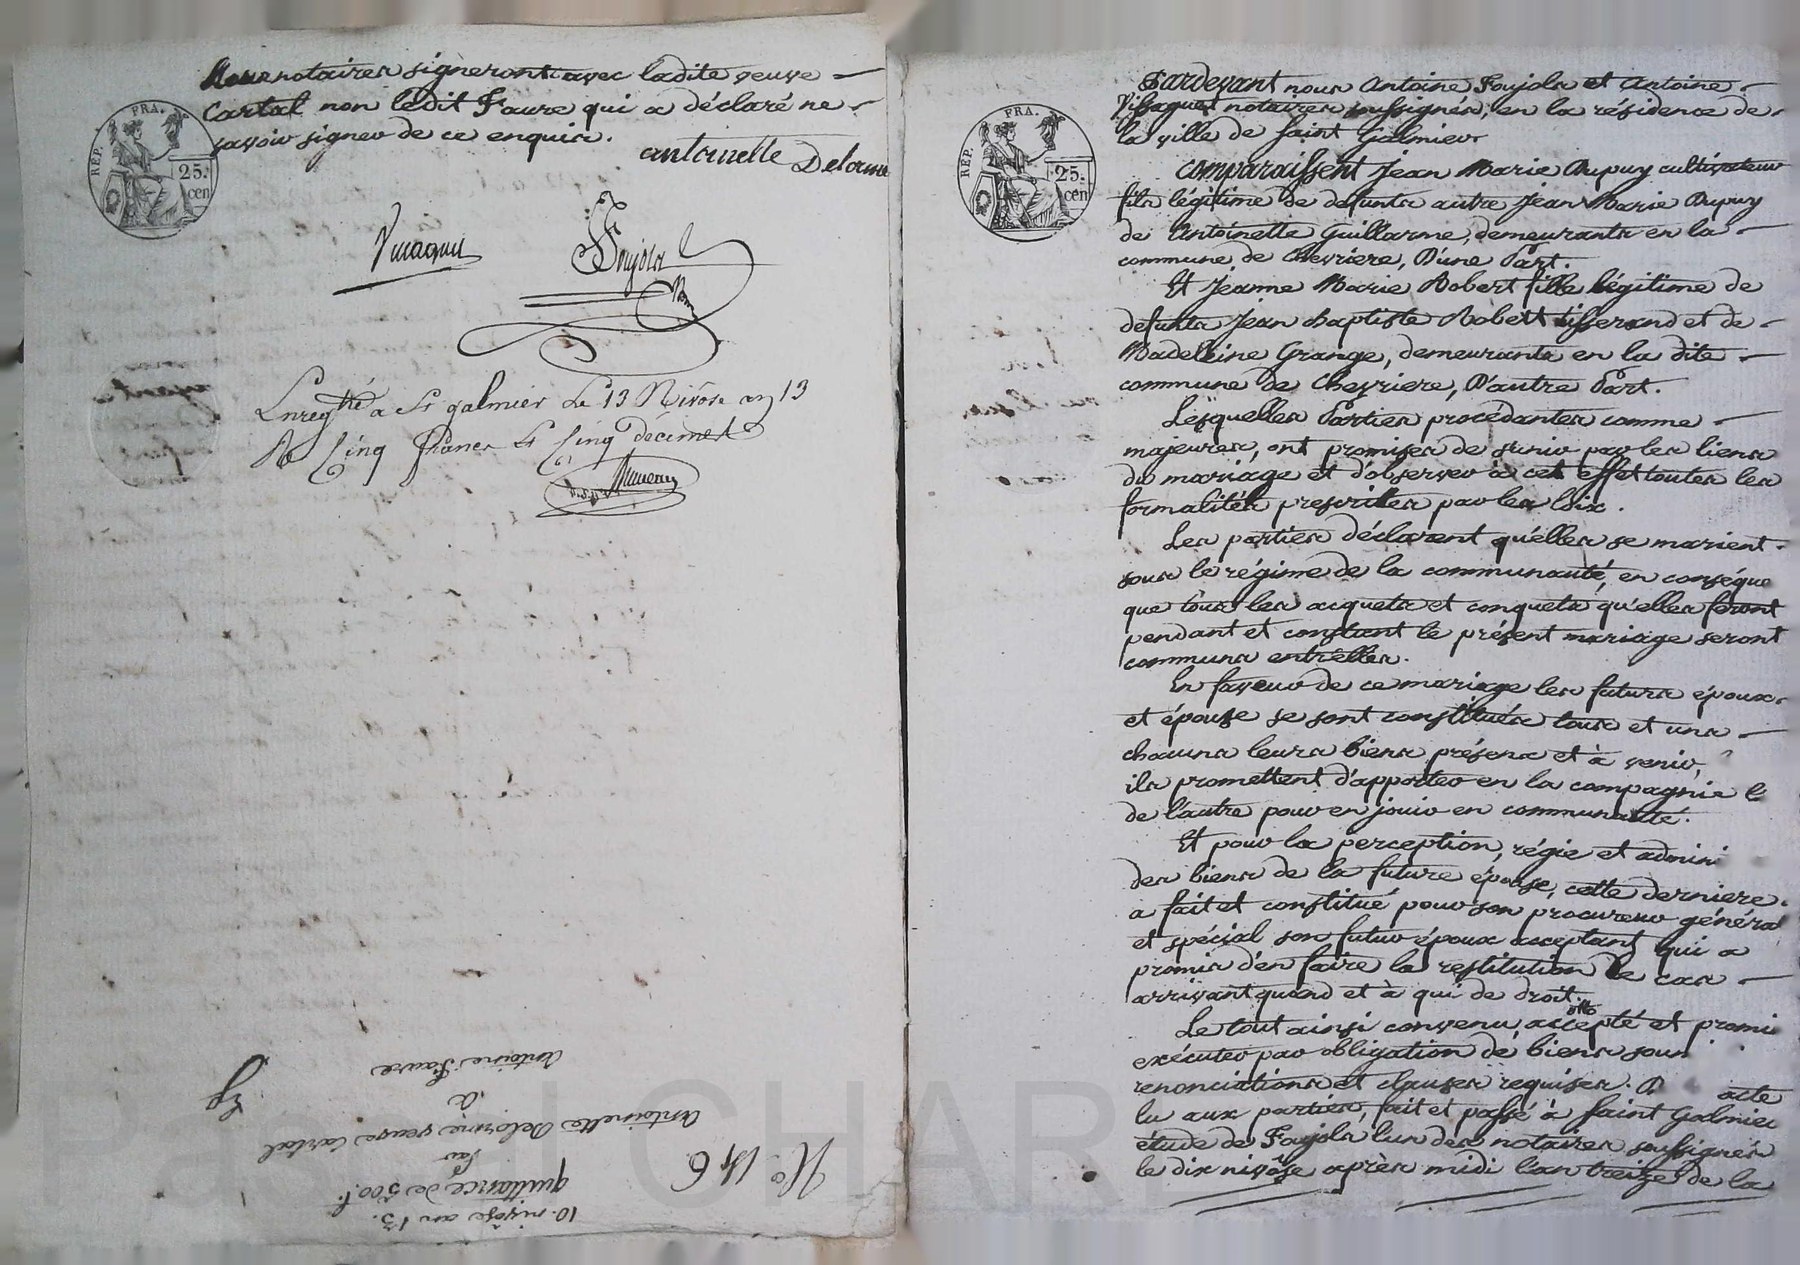 notaires signeront avec ladite veuve
Cartal non ledit Faure qui a déclaré ne
savoir signer de ce enquis.
antoinette Delorme
REP. FRA.
25.
cen
Foujols
Enregtré a St galmier Le 13 Nivôse an 13
R Cinq francs & Cinq décimes
N.o 146
10. nivôse an 13.
quittance de 500 f.
Par
Antoinette Delorme veuve Cartal
à
Antoine Faure
REP. FRA.
25.
cen
Pardevant nous Antoine Foujols et Antoine
notaires soussignés, en la résidence de
la ville de saint Galmier
comparaissent Jean Marie Dupuy cultivateur
fils légitime de defunts autre Jean Marie Dupuy
de Antoinette Guillarme, demeurants en la
commune de Chevriere, D'une Part.
Et Jeanne Marie Robert fille légitime de
defunts Jean Baptiste Robert tisserand et de
Madeleine Grange, demeurants en la dite
commune de Chevriere, D'autre Part.
Lesquelles Parties procédantes comme
majeures, ont promises de s'unir par les liens
du mariage et d'observer à cet effet toutes les
formalités prescrites par les loix.
Les parties déclarent qu'elles se marient
sous le régime de la communauté, en conséque
que tous les acquets et conquets qu'elles feront
pendant et constant le présent mariage seront
communs entr'elles.
En faveur de ce mariage les futurs époux
et épouse se sont constitués tous et uns
chacuns leurs biens présens et à venir,
ils promettent d'apporter en la compagnie l
de l'autre pour en jouir en communauté.
Et pour la perception, régie et admini
des biens de la future épouse, cette derniere
a fait et constitué pour son procureur général
et spécial son futur époux acceptant qui a
promis d'en faire la restitution le cas
arrivant quand et à qui de droit.
Le tout ainsi convenu accepté et promis
exécuter par obligation de biens sous
renonciations et clauses requises. D acte
lu aux parties, fait et passé à saint Galmier
étude de Foujols l'un des notaires soussignés
le dix nivôse après midi l'an treize de la